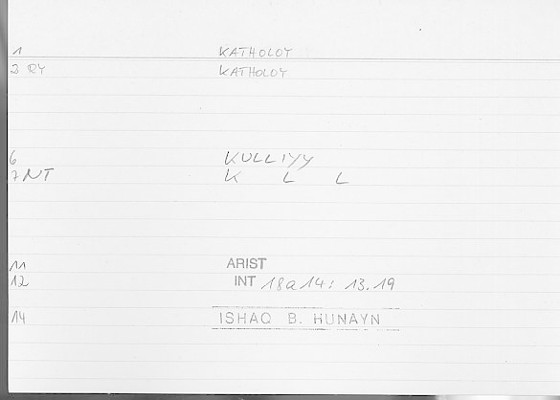 1 KATHOLOY
2 RY KATHOLOY
6 KULLIYY
7 NT K L L
11 ARIST
12 INT 18a14: 13.19
14 ISHAQ B. HUNAYN